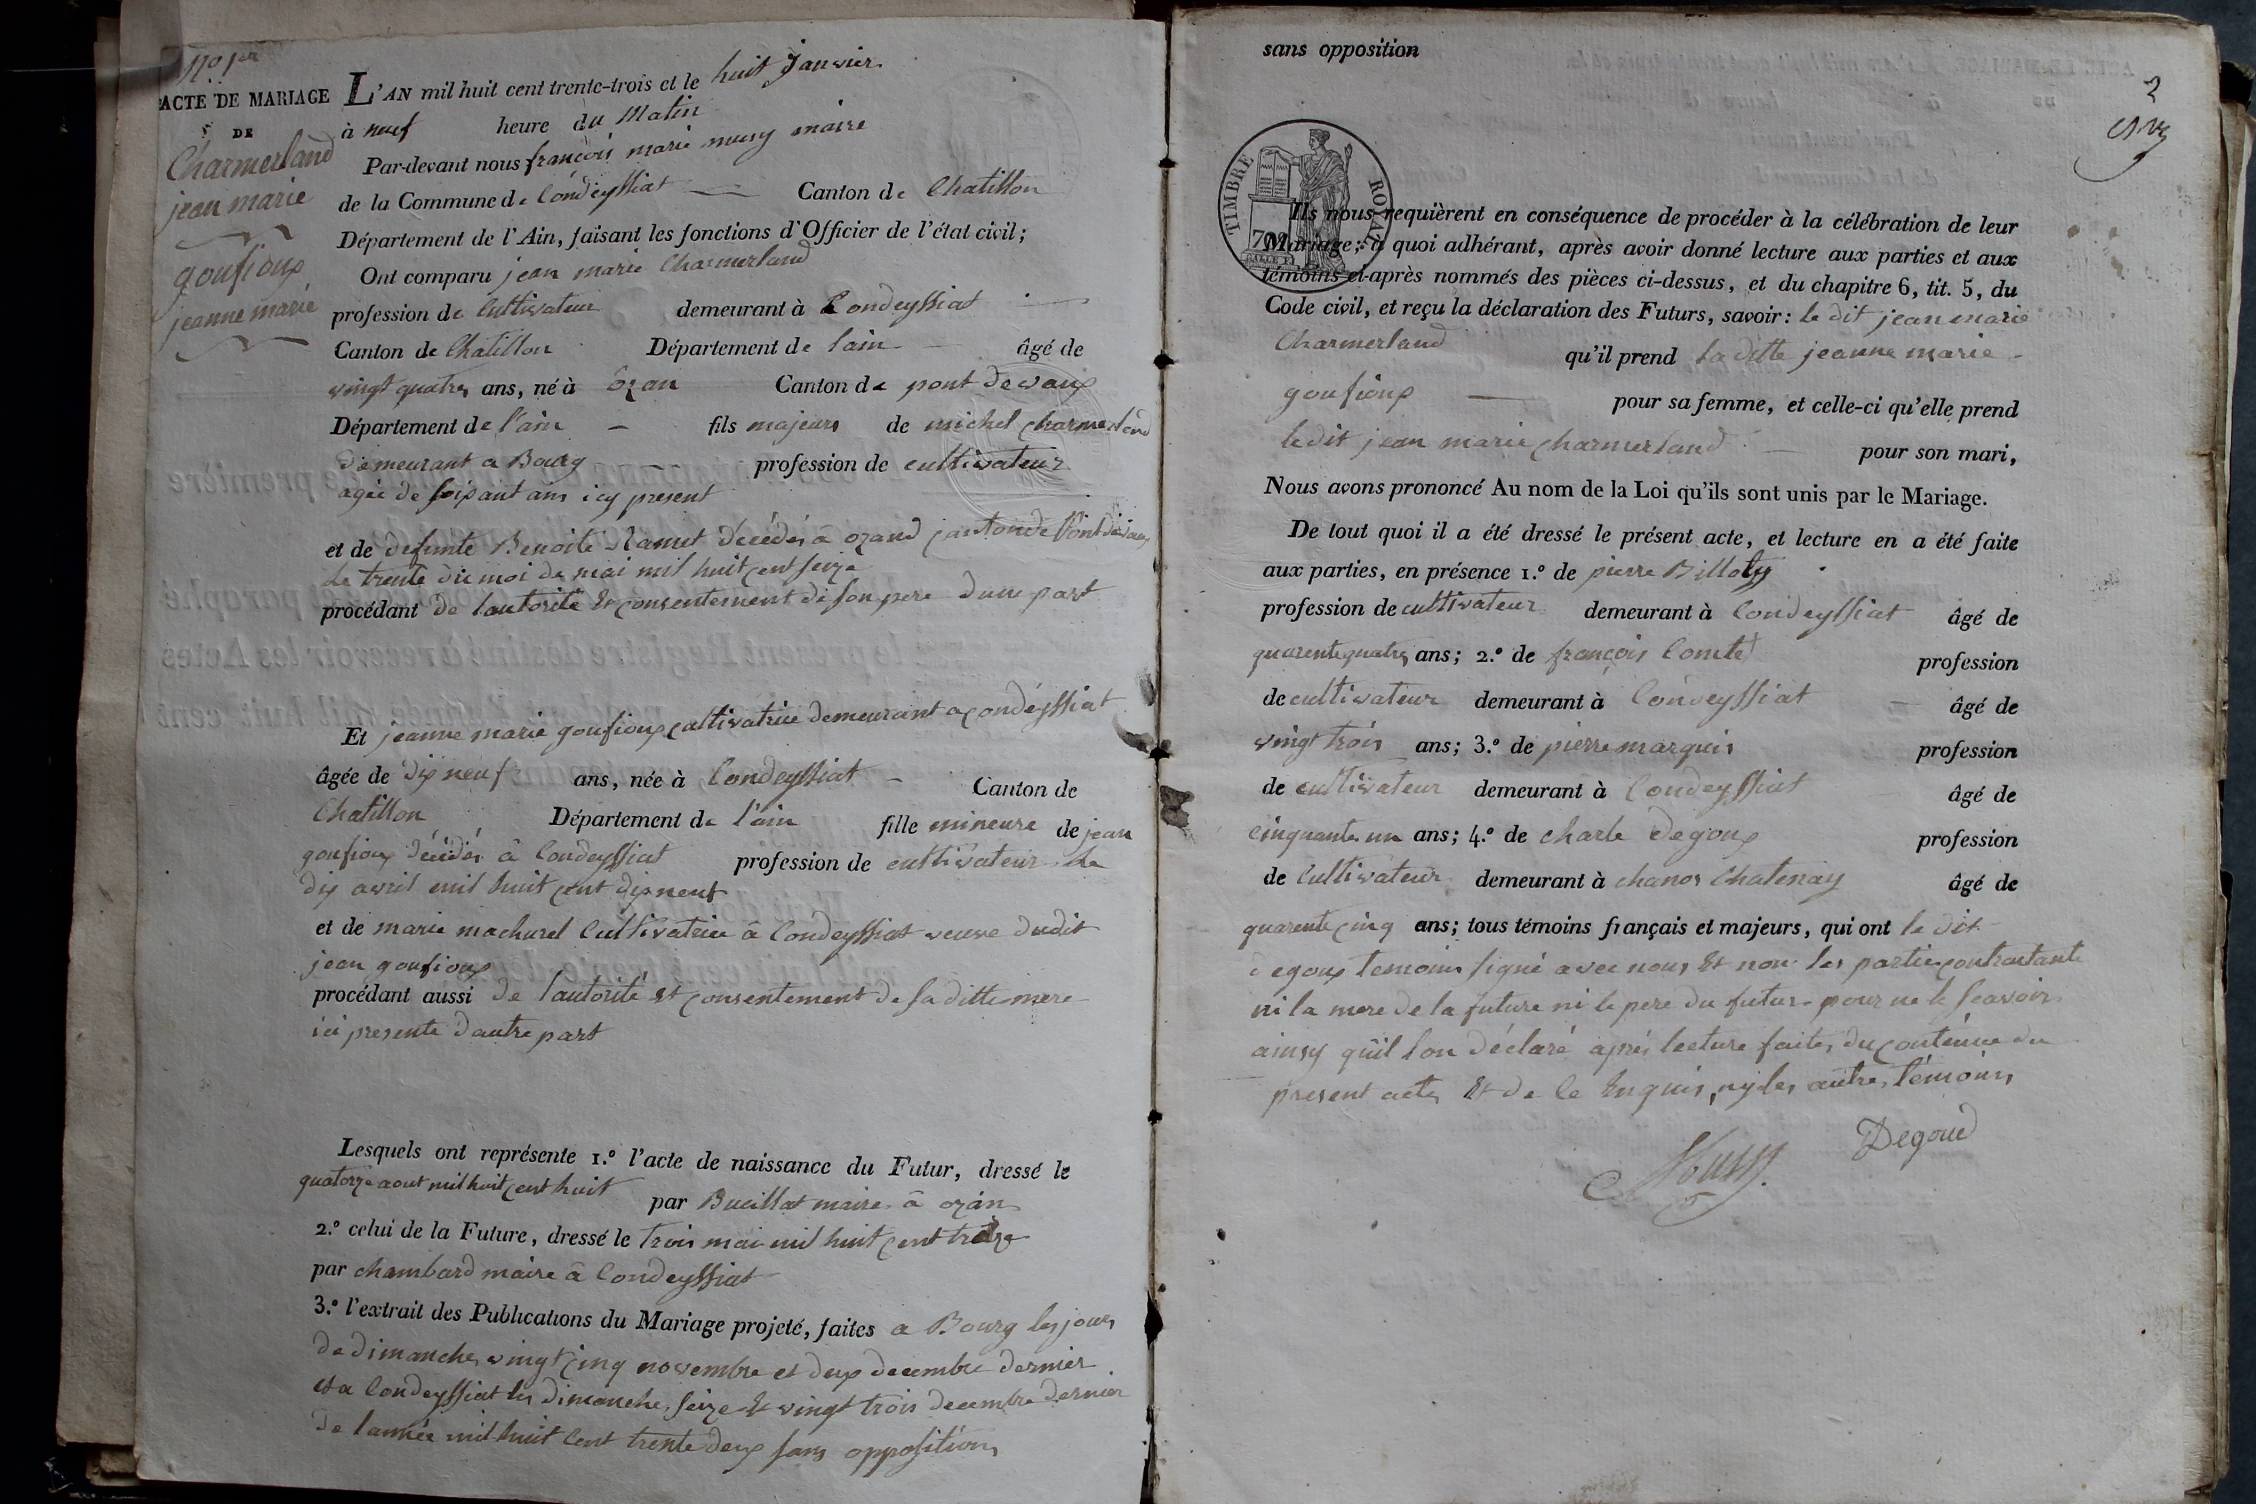 N.º 1er
ACTE DE MARIAGE
DE
Charmerland
jean marie
goufioux
jeanne marie
L'AN mil huit cent trente-trois et le huit janvier
à neuf heure du Matin
Par-devant nous françois marie mury maire
de la Commune de Condeyssiat Canton de Chatillon
Département de l'Ain, faisant les fonctions d'Officier de l'état civil;
Ont comparu jean marie Charmerland
profession de Cultivateur demeurant à Condeyssiat
Canton de Chatillon Département de l'ain âgé de
vingt quatre ans, né à Ozan Canton de pont de vaux
Département de l'ain fils majeurs de michel charmerland
demeurant a Bourg profession de cultivateur
agée de soixant ans icy present
et de defunte Benoite Ramet décédés a ozand canton de Pont de vaux
Le trente du moi de mai mil huit cent seize
procédant de lautorité et consentement de son pere dune part
Et jeanne marie goufioux cultivatrice demeurant a condéyssiat
âgée de dix neuf ans, née à Condeyssiat Canton de
Chatillon Département de l'ain fille mineure de jean
goufioux décédés à Condeyssiat profession de cultivateur Le
dix avril mil huit cent dix neuf
et de marie machurel Cultivatrice a Condeyssiat veuve dudit
jean goufioux
procédant aussi de lautorité et consentement de sa ditte mere
ici presente dautre part
Lesquels ont représente 1.º l'acte de naissance du Futur, dressé le
quatorze aout mil huit cent huit par Bucillat maire a ozan
2.º celui de la Future, dressé le trois mai mil huit cent treize
par chambard maire à Condeyssiat
3.º l'extrait des Publications du Mariage projeté, faites a Bourg les jours
de dimanche vingt cinq novembre et deux decembre dernier
et a Condeyssiat les dimanche seize et vingt trois decembre dernier
de lannée mil huit Cent trente deux sans opposition
sans opposition
2
TIMBRE ROYAL
70
Ils nous requièrent en conséquence de procéder à la célébration de leur
Mariage; à quoi adhérant, après avoir donné lecture aux parties et aux
témoins ci-après nommés des pièces ci-dessus, et du chapitre 6, tit. 5, du
Code civil, et reçu la déclaration des Futurs, savoir: le dit jean marie
Charmerland qu'il prend la ditte jeanne marie
goufioux pour sa femme, et celle-ci qu'elle prend
le dit jean marie charmerland pour son mari,
Nous avons prononcé Au nom de la Loi qu'ils sont unis par le Mariage.
De tout quoi il a été dressé le présent acte, et lecture en a été faite
aux parties, en présence 1.º de pierre Billoty
profession de cultivateur demeurant à Condeyssiat âgé de
quarente quatre ans; 2.º de françois Comte profession
de cultivateur demeurant à Condeyssiat âgé de
vingt trois ans; 3.º de pierre marquis profession
de cultivateur demeurant à Condeyssiat âgé de
cinquante un ans; 4.º de charle Degoux profession
de Cultivateur demeurant à chanos Chatenay âgé de
quarente cinq ans; tous témoins français et majeurs, qui ont le dit
degoux temoins signé avec nous et non les partie contractante
ni la mere de la future ni le pere du futur pour ne le scavoir
ainsy quil lon déclaré aprés lecture faite du contenue du
present acte et de ce Enquis, ny les autre témoins
Degoud
Mury